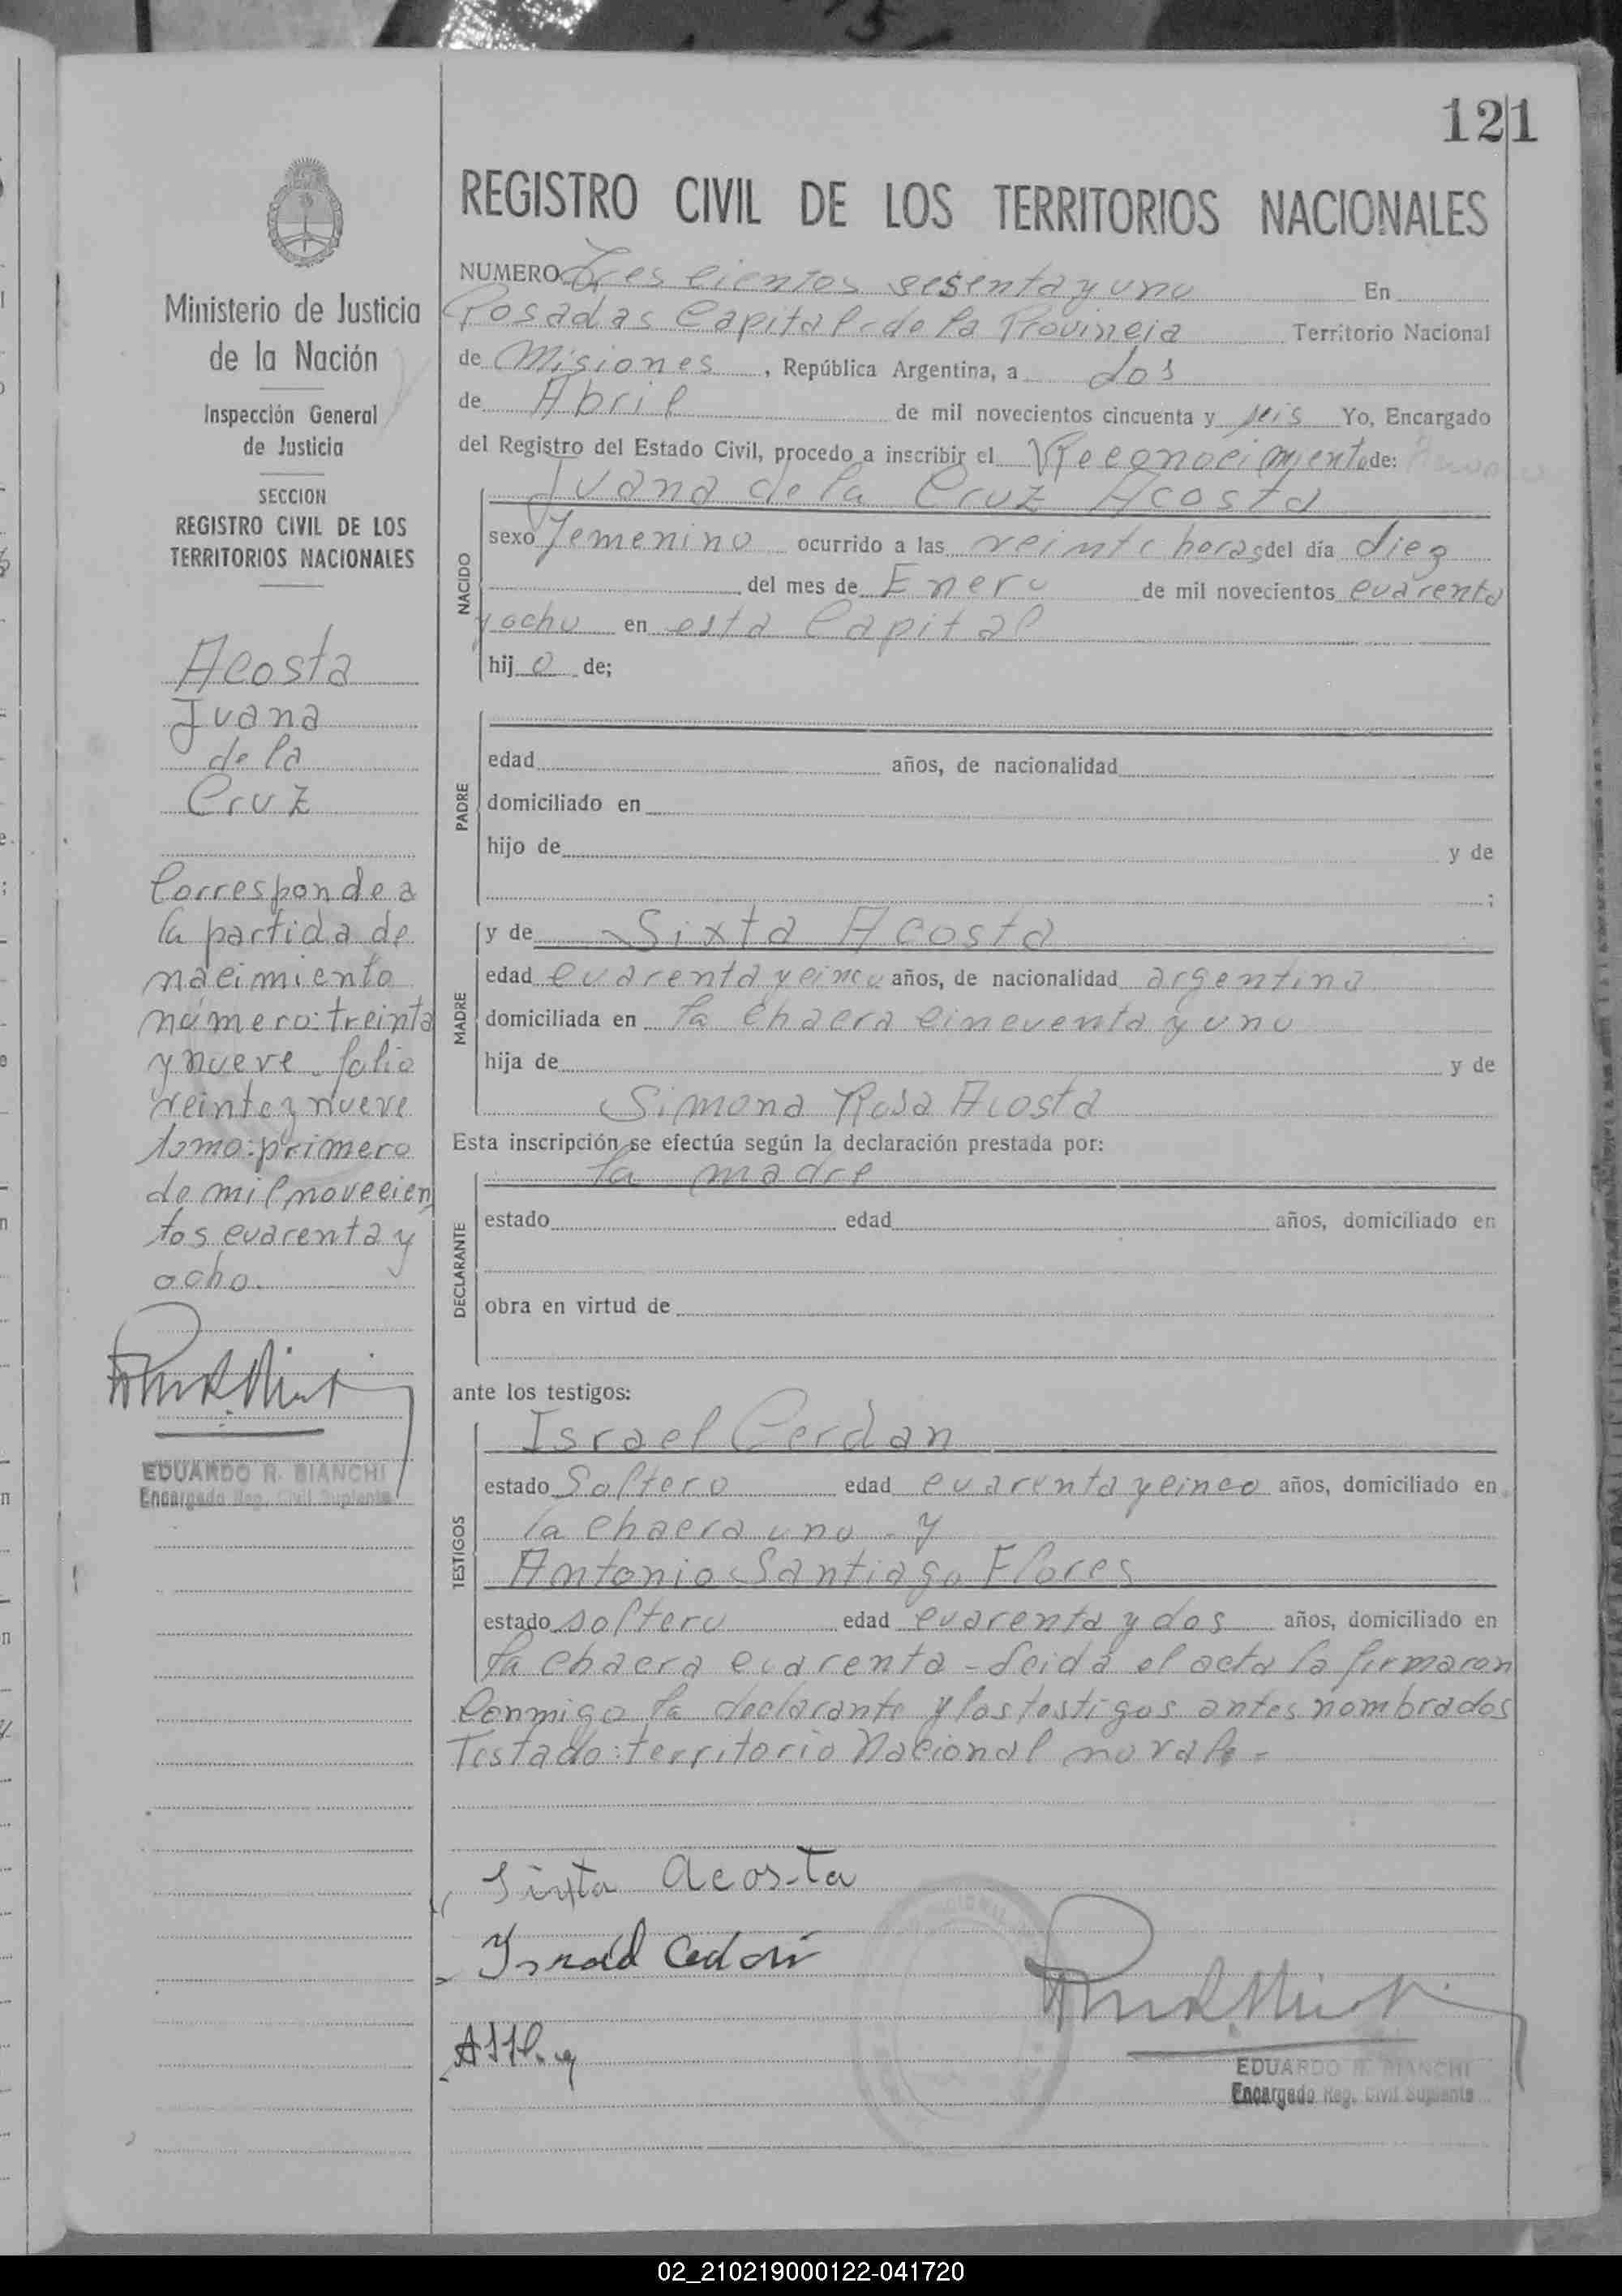 121
REGISTRO CIVIL DE LOS TERRITORIOS NACIONALES
Ministerio de Justicia
de la Nación
Inspección General
de Justicia
SECCION
REGISTRO CIVIL DE LOS
TERRITORIOS NACIONALES
Acosta
Juana
de la
Cruz
Corresponde a
la partida de
nacimiento
número: treinta
y nueve - folio
veinte y nueve
tomo: primero
de mil novecien
tos cuarenta y
ocho.
EDUARDO R. BIANCHI
Encargado Reg. Civil Suplente
NUMERO Tres cientos sesenta y uno En
Posadas Capital de la Provincia Territorio Nacional
de Misiones, República Argentina, a dos
de Abril de mil novecientos cincuenta y seis Yo, Encargado
del Registro del Estado Civil, procedo a inscribir el Reconocimiento de:
NACIDO
Juana de la Cruz Acosta
sexo femenino ocurrido a las veinte horas del día diez
del mes de Enero de mil novecientos cuarenta
y ocho en esta Capital
hij a de;
PADRE
edad años, de nacionalidad
domiciliado en
hijo de y de
;
MADRE
y de Sixta Acosta
edad cuarenta y cinco años, de nacionalidad argentina
domiciliada en la chacra cincuenta y uno
hija de y de
Simona Rosa Acosta
Esta inscripción se efectúa según la declaración prestada por:
DECLARANTE
la madre
estado edad años, domiciliado en
obra en virtud de
ante los testigos:
TESTIGOS
Israel Cerdan
estado Soltero edad cuarenta y cinco años, domiciliado en
la chacra uno - y
Antonio Santiago Flores
estado soltero edad cuarenta y dos años, domiciliado en
la chacra cuarenta - Leida el acta la firmaron
Conmigo la declarante y los testigos antes nombrados
Testado: territorio Nacional no vale -
Sixta Acosta
Israel Cerdán
EDUARDO R. BIANCHI
Encargado Reg. Civil Suplente
02_210219000122-041720